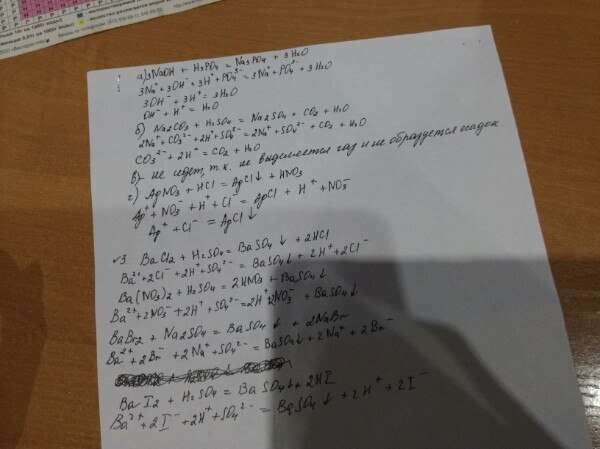 а) 3NaOH + H3PO4 = Na3PO4 + 3H2O
3Na⁺ + 3OH⁻ = 3H⁺ + PO4³⁻ = 3Na⁺ + PO4³⁻ + 3H2O
3OH⁻ + 3H⁺ = 3H2O
OH⁻ + H⁺ = H2O
б) Na2CO3 + H2SO4 = Na2SO4 + CO2 + H2O
2Na⁺ + CO3²⁻ + 2H⁺ + SO4²⁻ = 2Na⁺ + SO4²⁻ + CO2 + H2O
CO3²⁻ + 2H⁺ = CO2 + H2O
в) - не идет, т.к. не выделяется газ и не образуется осадок
г) AgNO3 + HCl = AgCl↓ + HNO3
Ag⁺ + NO3⁻ + H⁺ + Cl⁻ = AgCl + H⁺ + NO3⁻
Ag⁺ + Cl⁻ = AgCl↓
√3. BaCl2 + H2SO4 = BaSO4↓ + 2HCl
Ba²⁺ + 2Cl⁻ + 2H⁺ + SO4²⁻ = BaSO4↓ + 2H⁺ + 2Cl⁻
Ba(NO3)2 + H2SO4 = 2HNO3 + BaSO4↓
Ba²⁺ + 2NO3⁻ + 2H⁺ + SO4²⁻ = 2H⁺ 2NO3⁻ + BaSO4↓
BaBr2 + Na2SO4 = BaSO4↓ + 2NaBr
Ba²⁺ + 2Br⁻ + 2Na⁺ + SO4²⁻ = BaSO4↓ + 2Na⁺ + 2Br⁻
BaI2 + H2SO4 = BaSO4↓ + 2HI
Ba²⁺ + 2I⁻ + 2H⁺ + SO4²⁻ = BaSO4↓ + 2H⁺ + 2I⁻